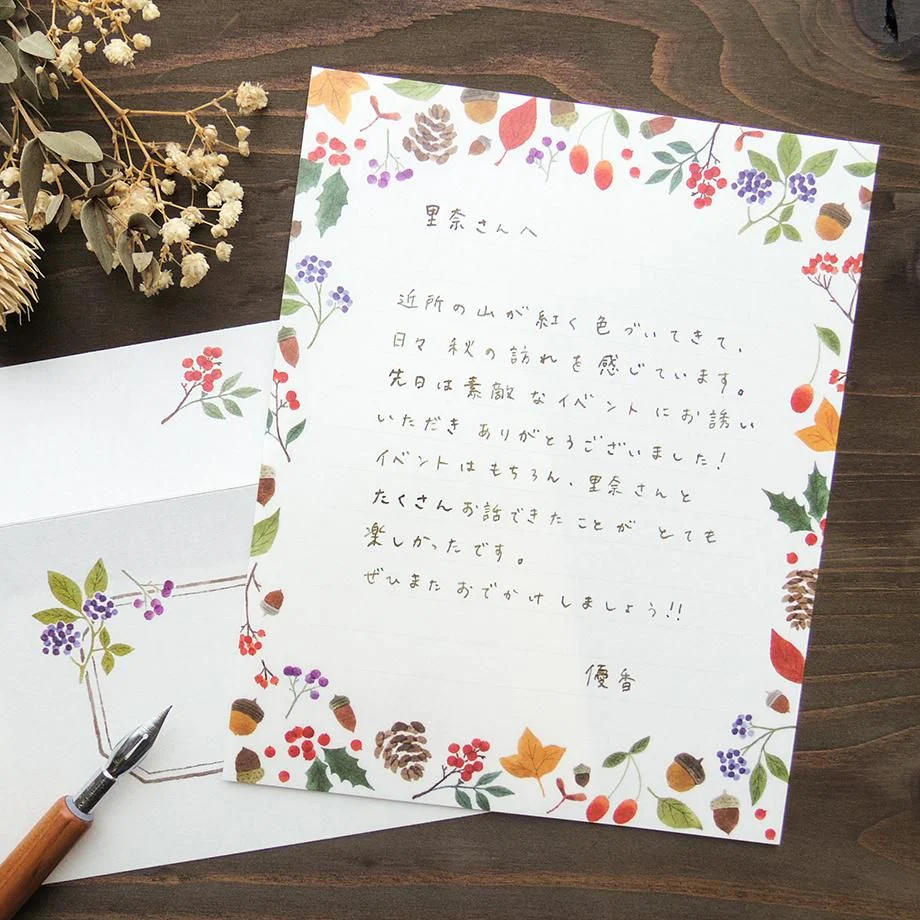 里奈さんへ
近所の山が紅く色づいてきて、
日々秋の訪れを感じています。
先日は素敵なイベントにお誘い
いただきありがとうございました!
イベントはもちろん、里奈さんと
たくさんお話できたことがとても
楽しかったです。
ぜひまたおでかけしましょう!!
優香